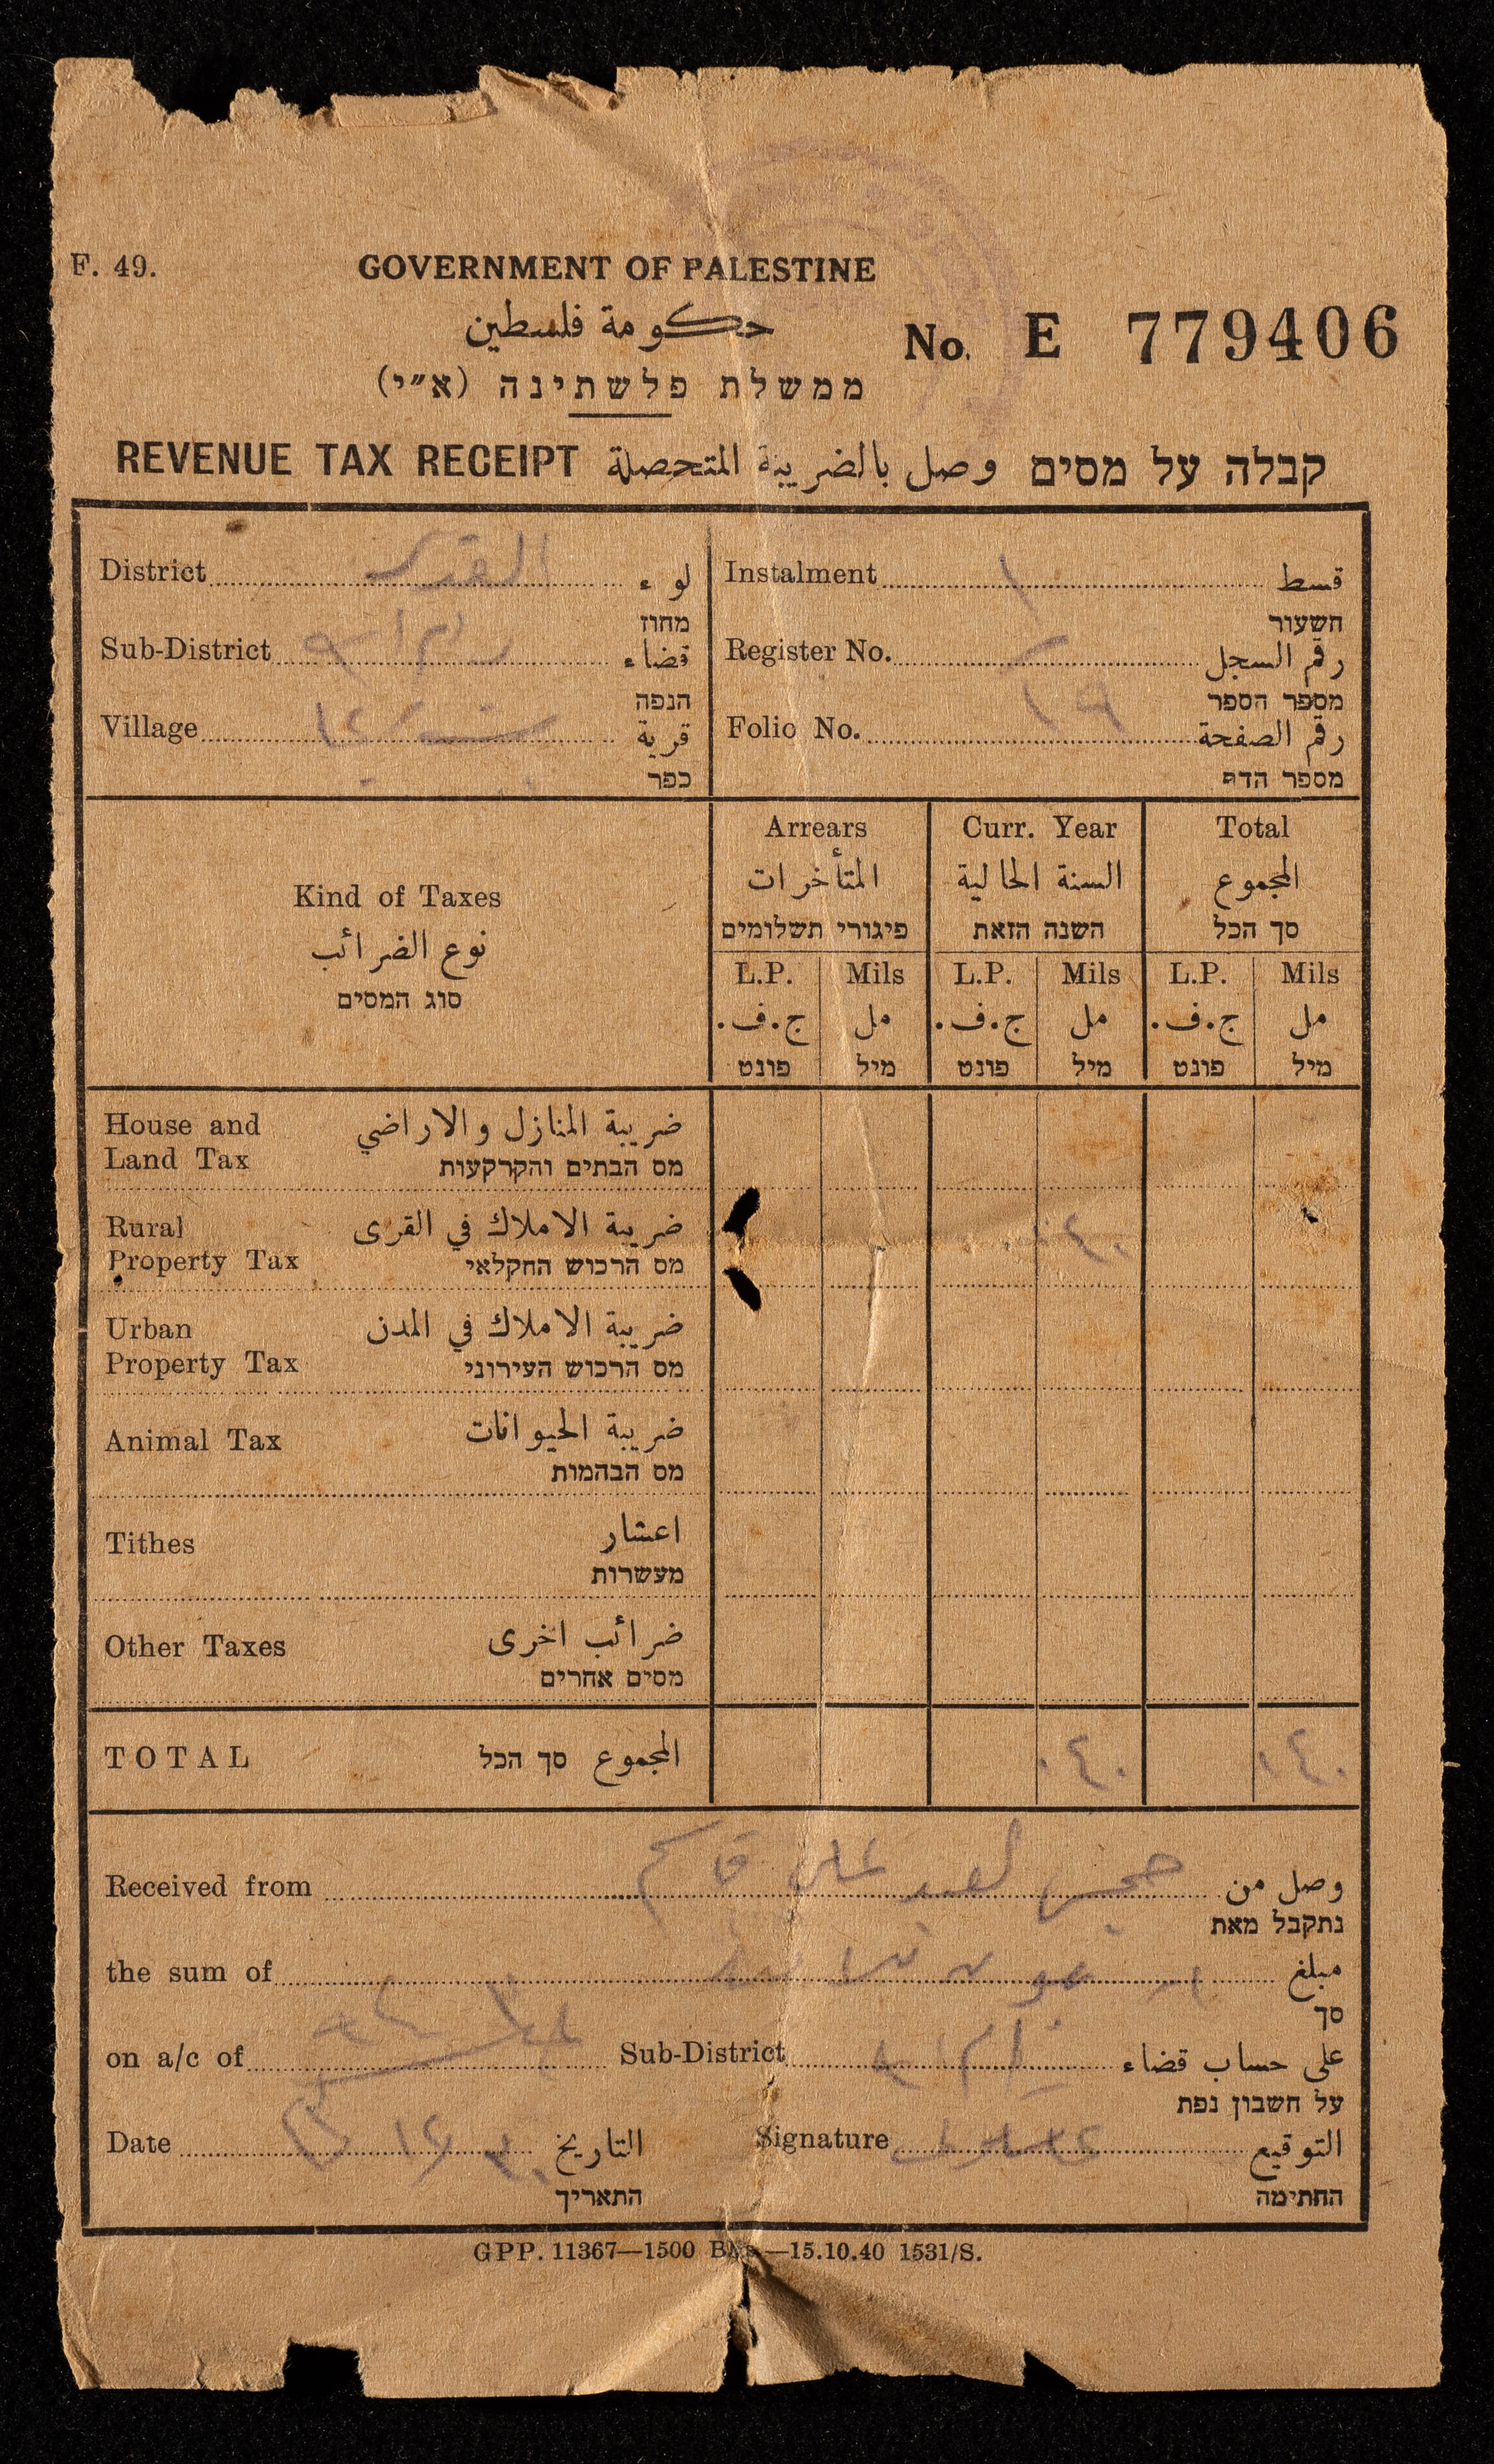 F. 49.
GOVERNMENT OF PALESTINE
حكومة فلسطين
No. E 779406
ממשלת פלשתינה (א״י)
REVENUE TAX RECEIPT وصل بالضريبة المتحصلة קבלה על מסים
District القدس لوء
Instalment ١ قسط
מחוז
תשעור
Sub-District رام الله قضاء
Register No. رقم السجل
הנפה
מספר הספר
Village قرية
Folio No. ١٩ رقم الصفحة
כפר
מספר הדף
Kind of Taxes
نوع الضرائب
סוג המסים
Arrears Curr. Year Total
المتأخرات السنة الحالية المجموع
פיגורי תשלומים השנה הזאת סך הכל
L.P. Mils L.P. Mils L.P. Mils
ج.ف. مل ج.ف. مل ج.ف. مل
פונט מיל פונט מיל פונט מיל
House and Land Tax
ضريبة المنازل والاراضي
מס הבתים והקרקעות
Rural Property Tax
ضريبة الاملاك في القرى
מס הרכוש החקלאי
٠٤٠
Urban Property Tax
ضريبة الاملاك في المدن
מס הרכוש העירוני
Animal Tax
ضريبة الحيوانات
מס הבהמות
Tithes
اعشار
מעשרות
Other Taxes
ضرائب اخرى
מסים אחרים
TOTAL المجموع סך הכל ٠٤٠ ٠٤٠
Received from علي قاسم وصل من
נתקבל מאת
the sum of مبلغ
סך
on a/c of Sub-District رام الله على حساب قضاء
על חשבון נפת
Date التاريخ
Signature التوقيع
התאריך
החתימה
GPP. 11367—1500 —15.10.40 1531/S.